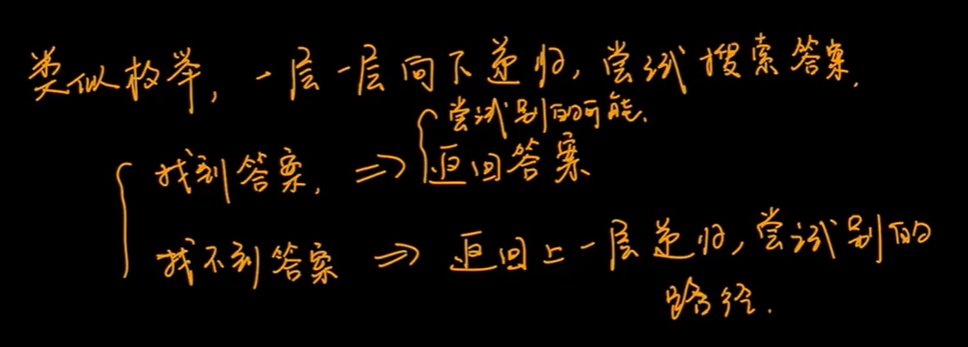 类似枚举，一层一层向下递归，尝试搜索答案.
尝试别的可能.
找到答案， ⇒ 返回答案
找不到答案 ⇒ 返回上一层递归，尝试别的
路径.